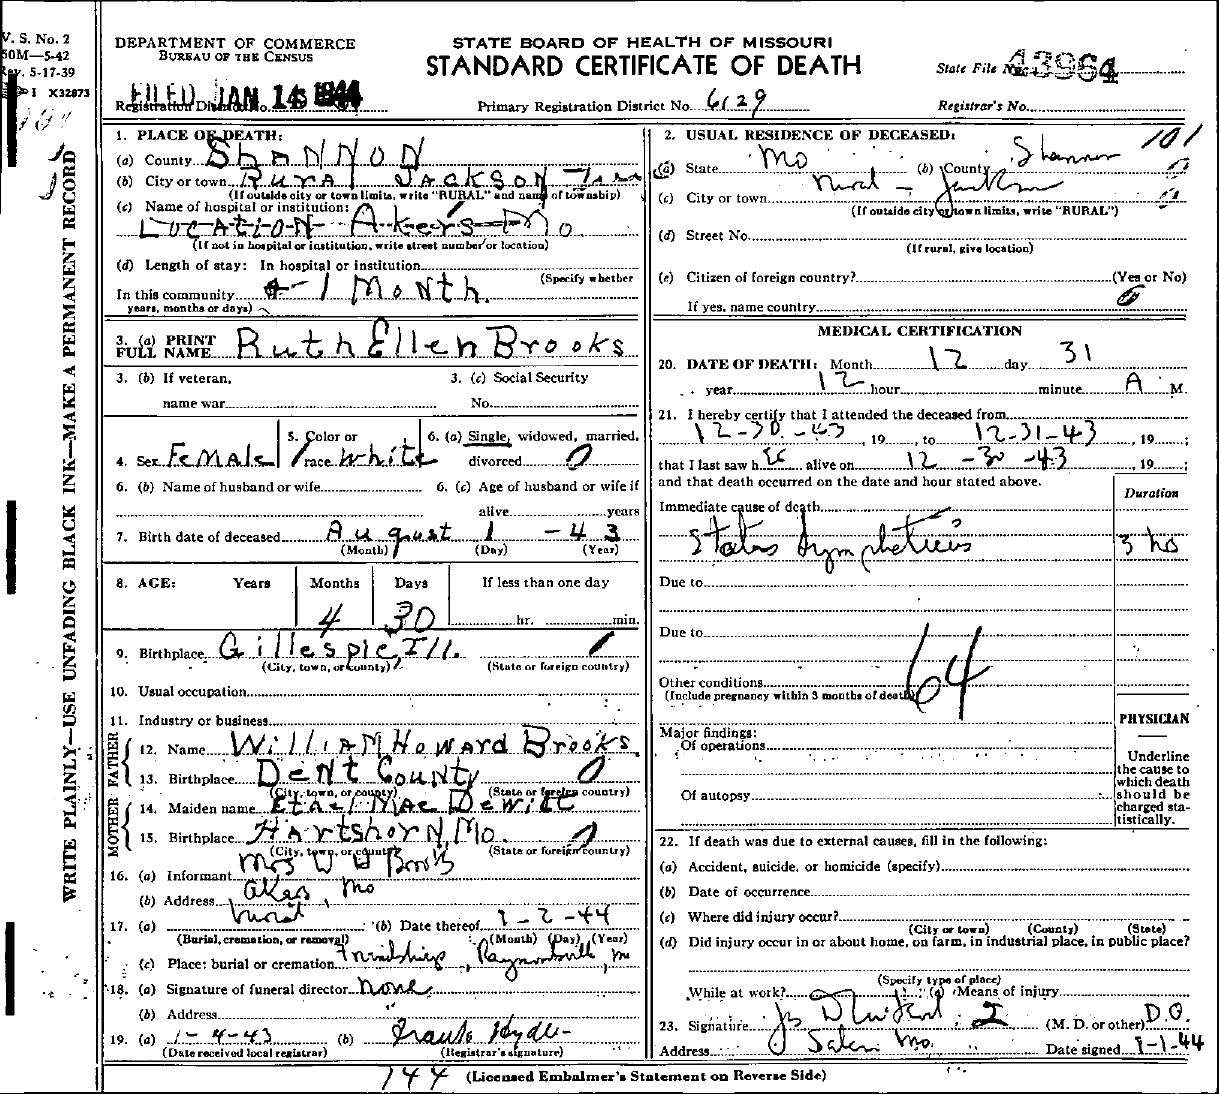 V. S. No. 2
50M—5-42
Rev. 5-17-39
I X32873
WRITE PLAINLY—USE UNFADING BLACK INK—MAKE A PERMANENT RECORD
DEPARTMENT OF COMMERCE
BUREAU OF THE CENSUS
STATE BOARD OF HEALTH OF MISSOURI
STANDARD CERTIFICATE OF DEATH
State File No. 43964
FILED JAN 1944
Registration District No.
Primary Registration District No. 6129
Registrar's No.
1. PLACE OF DEATH:
(a) County SHANNON
(b) City or town Rural JACKSON
(If outside city or town limits, write "RURAL" and name of township)
(c) Name of hospital or institution:
LOCATION Akers—Mo
(If not in hospital or institution, write street number or location)
(d) Length of stay: In hospital or institution
(Specify whether
In this community 1 MONTH.
years, months or days)
3. (a) PRINT FULL NAME Ruth Ellen Brooks
3. (b) If veteran,
name war
3. (c) Social Security
No.
4. Sex Female
5. Color or race White
6. (a) Single, widowed, married,
divorced 0
6. (b) Name of husband or wife
6. (c) Age of husband or wife if
alive years
7. Birth date of deceased August 1 - 43
(Month) (Day) (Year)
8. AGE: Years Months Days If less than one day
4 30 hr. min.
9. Birthplace Gillespie, Ill.
(City, town, or county) (State or foreign country)
10. Usual occupation
11. Industry or business
FATHER
12. Name William Howard Brooks
13. Birthplace Dent County 0
(City, town, or county) (State or foreign country)
MOTHER
14. Maiden name Ethel Mae Dewitt
15. Birthplace Hartshorn, Mo. 0
(City, town, or county) (State or foreign country)
16. (a) Informant Mrs W H Brooks
(b) Address Akers, Mo
17. (a) burial (b) Date thereof 1-2-44
(Burial, cremation, or removal) (Month) (Day) (Year)
(c) Place: burial or cremation Raymondville, Mo
18. (a) Signature of funeral director none
(b) Address
19. (a) 1-4-43 (b)
(Date received local registrar) (Registrar's signature)
2. USUAL RESIDENCE OF DECEASED: 101
(a) State Mo (b) County Shannon
(c) City or town Rural - Jackson
(If outside city or town limits, write "RURAL")
(d) Street No.
(If rural, give location)
(e) Citizen of foreign country? (Yes or No)
If yes, name country 0
MEDICAL CERTIFICATION
20. DATE OF DEATH: Month 12 day 31
year 12 hour minute A M.
21. I hereby certify that I attended the deceased from
12-30-43, 19 , to 12-31-43, 19 ;
that I last saw h alive on 12-30-43, 19 ;
and that death occurred on the date and hour stated above.
Duration
Immediate cause of death
Status Lympheticus 3 hrs
Due to
Due to
64
Other conditions
(Include pregnancy within 3 months of death)
PHYSICIAN
Major findings:
Of operations
Of autopsy
Underline the cause to which death should be charged statistically.
22. If death was due to external causes, fill in the following:
(a) Accident, suicide, or homicide (specify)
(b) Date of occurrence
(c) Where did injury occur?
(City or town) (County) (State)
(d) Did injury occur in or about home, on farm, in industrial place, in public place?
(Specify type of place)
While at work? (e) Means of injury
23. Signature (M. D. or other) D.O.
Address Salem Mo. Date signed 1-1-44
744
(Licensed Embalmer's Statement on Reverse Side)